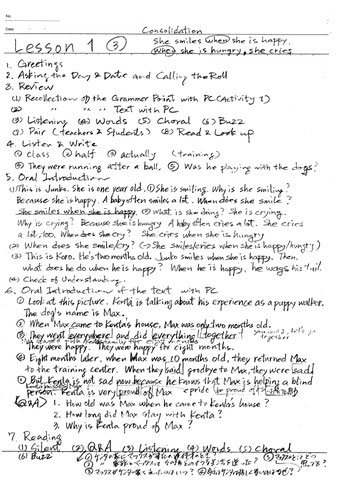 No.
Date
Consolidation
Lesson 1 ③ She smiles when she is happy.
When she is hungry, she cries
1. Greetings
2. Asking the Day & Date and Calling the Roll
3. Review
(1) Recollection of the Grammer Point with PC (Activity 1)
(2) 〃 〃 Text with PC
(3) Listening (4) Words (5) Choral (6) Buzz
(7) Pair (Teachers & Students) (8) Read & Look up
4. Listen & Write
① class ② half ③ actually (training)
④ They were running after a ball. ⑤ Was he playing with the dogs?
5. Oral Introduction
(1) This is Junko. She is one year old. ① She is smiling. Why is she smiling?
Because she is happy. A baby often smiles a lot. When does she smile?
She smiles when she is happy. ② What is she doing? She is crying.
Why is crying? Because she is hungry. A baby often cries a lot. She cries
a lot, too. When does she cry? She cries when she is hungry
(2) When does she smile/cry? (→ She smiles/cries when she is happy/hungry)
(3) This is Koro. He's two months old. Junko smiles when she is happy. Then,
what does he do when he is happy? When he is happy, he wags his tail.
(4) Check of Understanding.
6. Oral Introduction of the text with PC
① Look at this picture. Kenta is talking about his experience as a puppy walker.
The dog's name is Max.
② When Max came to Kenta's house, Max was only two months old.
③ They went everywhere and did everything together
They were happy. They were happy for eight months.
④ Eight months later, when Max was 10 months old, they returned Max
to the training center. When they said goodbye to Max, they were sad
⑤ But Kenta is not sad now because he knows that Max is helping a blind
person. Kenta is very proud of Max
Q&A 1. How old was Max when he came to Kenta's house?
2. How long did Max stay with Kenta?
3. Why is Kenta proud of Max?
7. Reading
(1) Silent (2) Q&A (3) Listening (4) Words (5) Choral
(6) Buzz